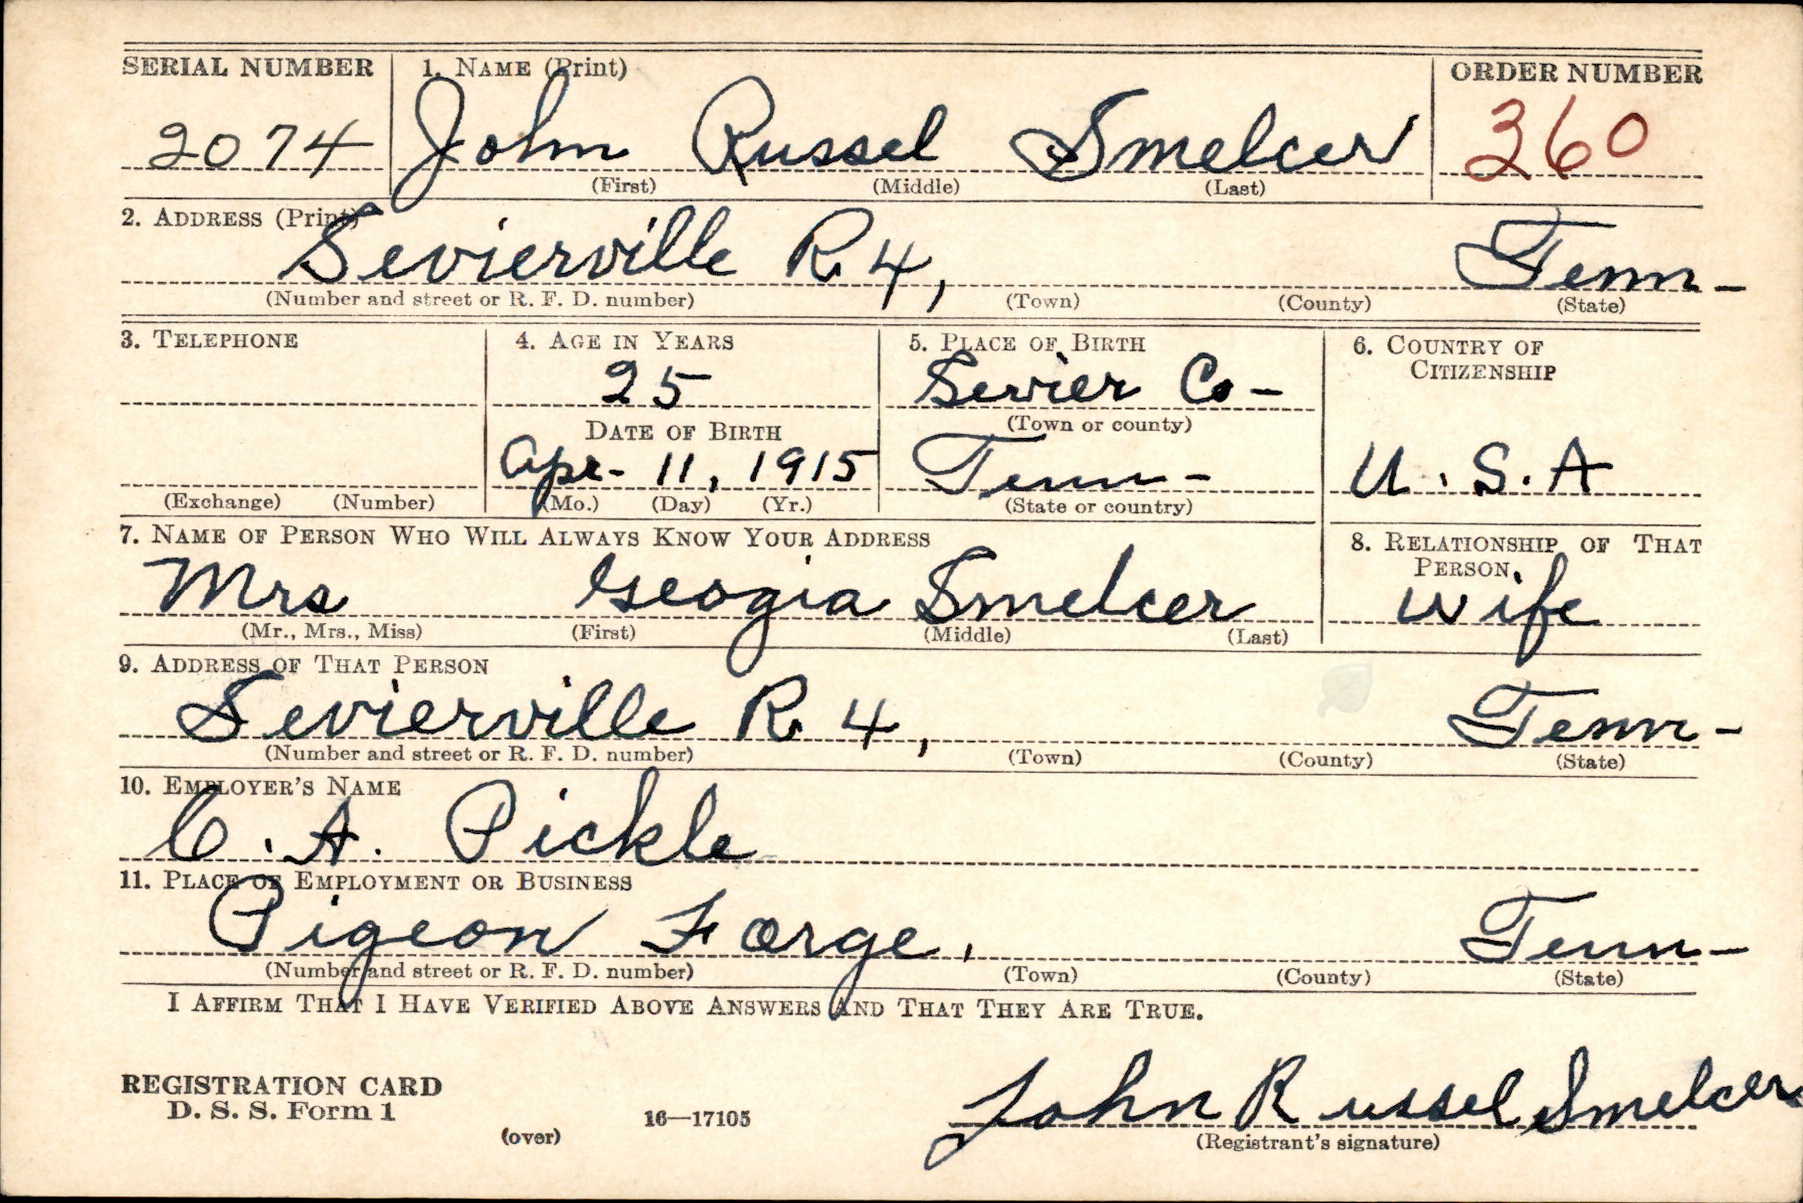 SERIAL NUMBER 1. NAME (Print) ORDER NUMBER
2074 John Russel Smelcer 360
(First) (Middle) (Last)
2. ADDRESS (Print)
Sevierville R 4, Tenn-
(Number and street or R. F. D. number) (Town) (County) (State)
3. TELEPHONE 4. AGE IN YEARS 5. PLACE OF BIRTH 6. COUNTRY OF CITIZENSHIP
25 Sevier Co-
DATE OF BIRTH (Town or county)
Apr- 11, 1915 Tenn- U.S.A
(Exchange) (Number) (Mo.) (Day) (Yr.) (State or country)
7. NAME OF PERSON WHO WILL ALWAYS KNOW YOUR ADDRESS 8. RELATIONSHIP OF THAT PERSON
Mrs Geogia Smelcer wife
(Mr., Mrs., Miss) (First) (Middle) (Last)
9. ADDRESS OF THAT PERSON
Sevierville R 4, Tenn-
(Number and street or R. F. D. number) (Town) (County) (State)
10. EMPLOYER'S NAME
C. A. Pickle
11. PLACE OF EMPLOYMENT OR BUSINESS
Pigeon Forge, Tenn-
(Number and street or R. F. D. number) (Town) (County) (State)
I AFFIRM THAT I HAVE VERIFIED ABOVE ANSWERS AND THAT THEY ARE TRUE.
REGISTRATION CARD
D. S. S. Form 1 16—17105 John Russel Smelcer
(over) (Registrant's signature)